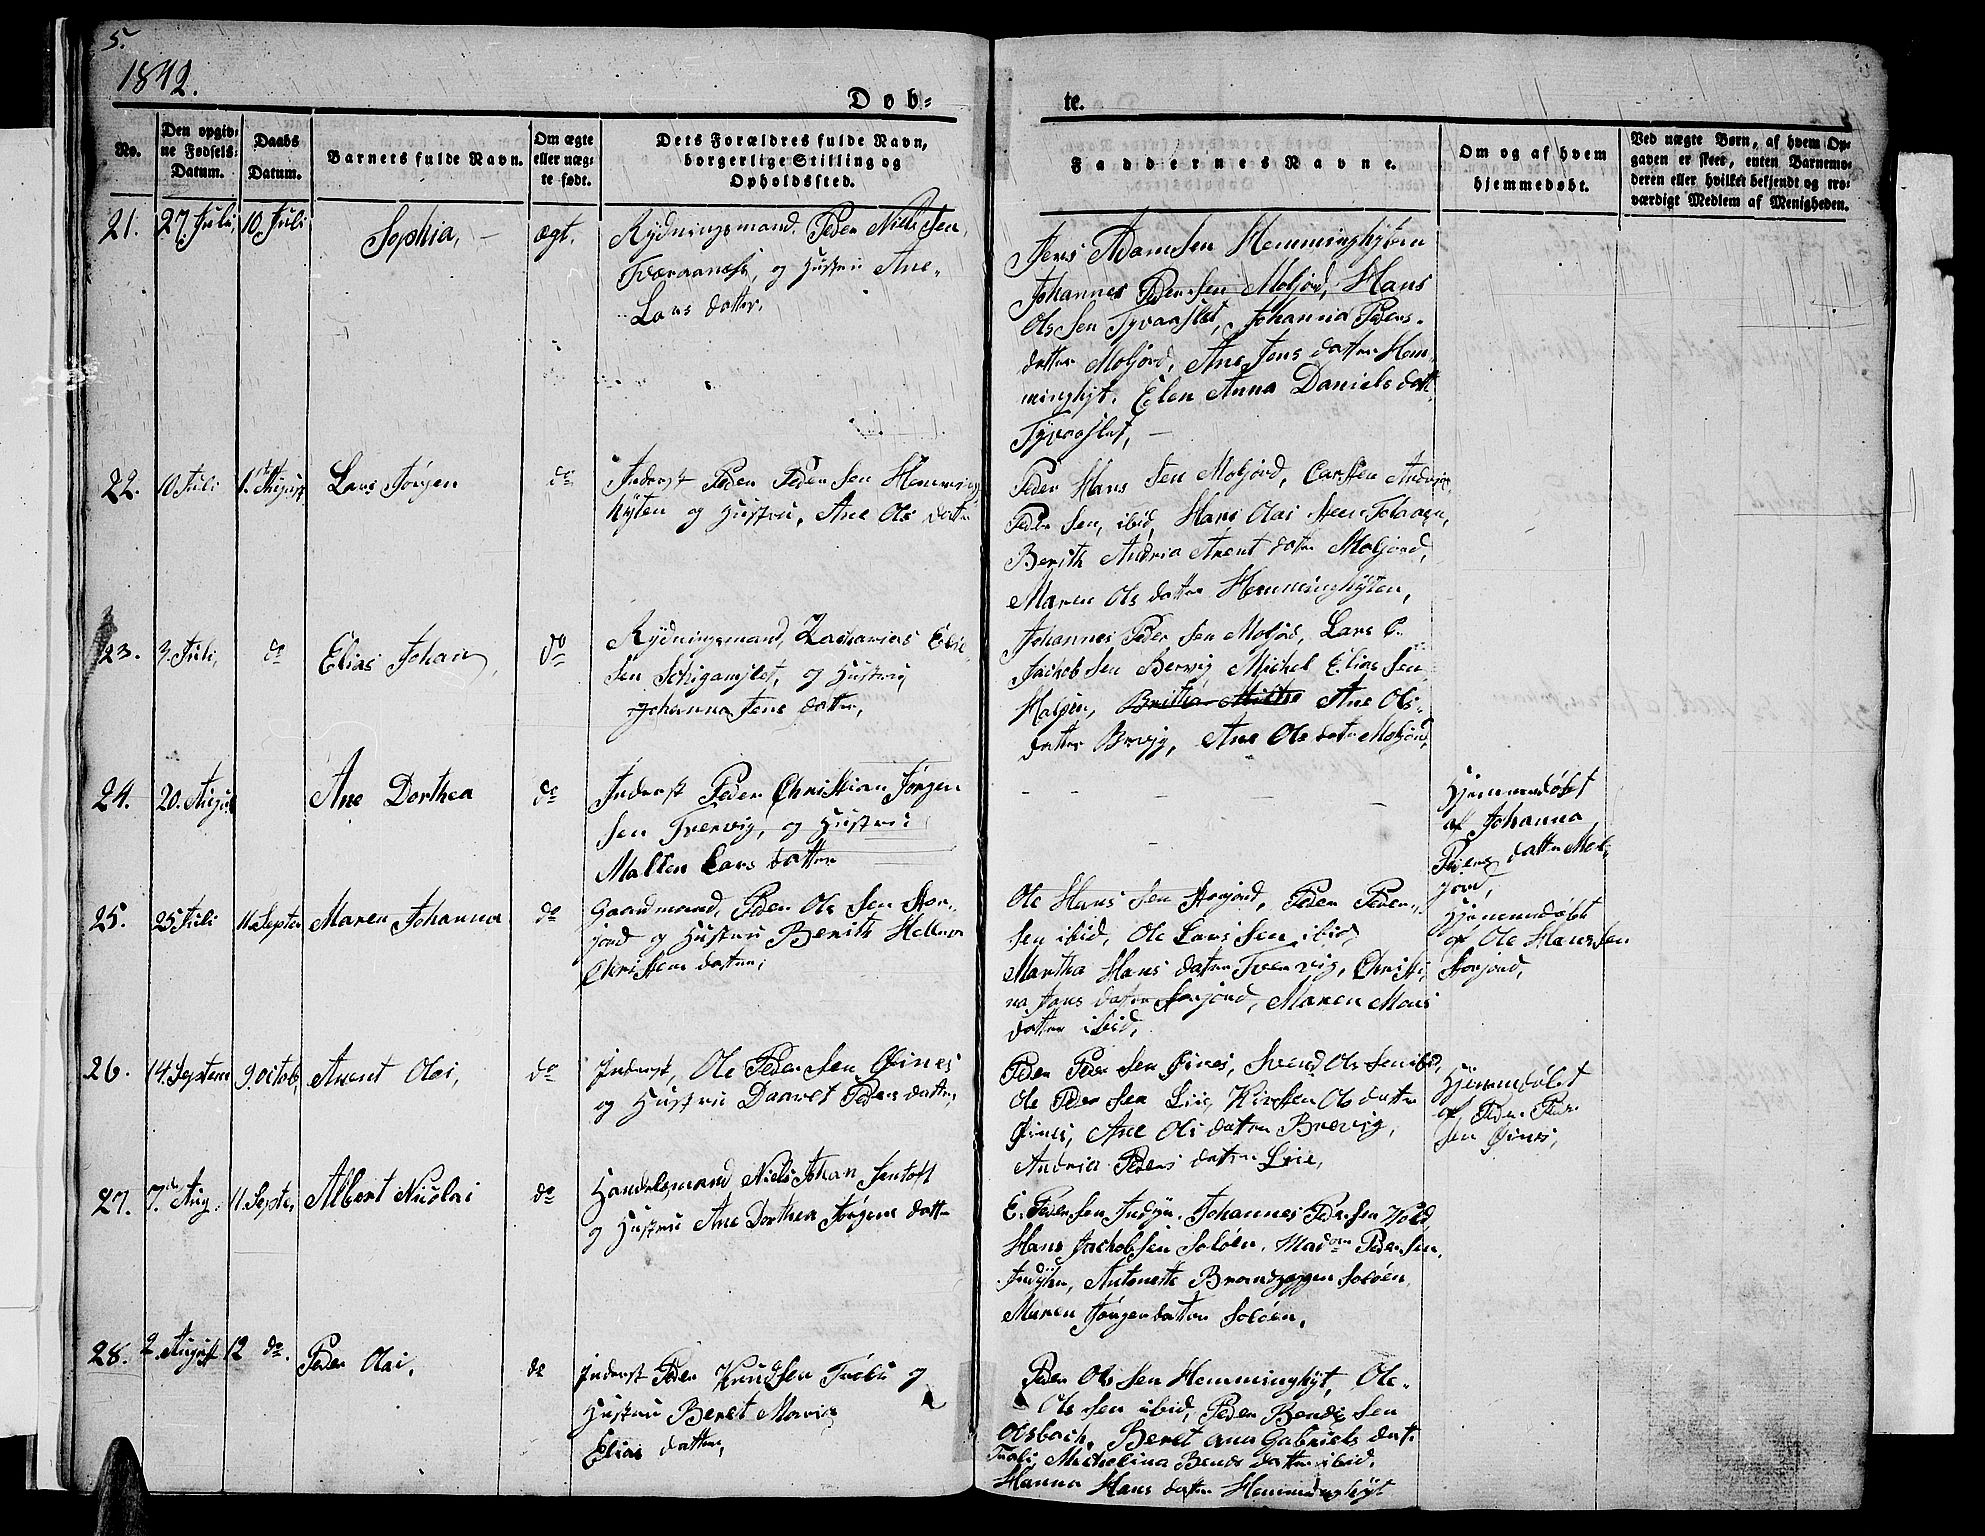 5.
1842.
Døb=
te.
No.
Den opgiv=
ne Fødsels=
Datum.
Daabs
Datum.
Barnets fulde Navn.
Om ægte
eller uæg=
te født.
Dets Forældres fulde Navn,
borgerlige Stilling og
Opholdssted.
Faddernes Navne.
Om og af hvem
hjemmedøbt.
Ved uægte Børn, af hvem Op=
gaven er skeet, enten Barnemo=
deren eller hvilket bekjendt og tro=
værdigt Medlem af Menigheden.
21. 27. Juli, 10. Juli Sophia, — ægt.
Rydningsmand. Peder Niels Sen
Tværaanæs, og Hustru Ane
Lars datter.
Jens Adam Sen Hemminghyten
Johannes Peder Sen Moljord, Hans
Ols Sen Tyvaaslet, Johanna Peders
datter Moljord, Ane Jens datter Hem
minghyt. Elen Anna Daniels datt.
Tyvaaslet, —
22. 10 Juli 1ste August Lars Jørgen do
Inderst Peder Peder Sen Hemming
hyten og Hustru, Ane Ols datter
Peder Hans Sen Moljord, Carsten Andreas
Peder Sen, ibid, Hans Olai
Berith Andria Arent datter Moljord,
Maren Ols datter Hemminghyten,
23. 3. Juli, do Elias Johan, do
Rydningsmand, Zacharias Elia
Sen og Hustru
Johanna Jens datter,
Johannes Peder Sen Moljord, Lars C.
Jackob Sen Bervig, Michel Elias Sen
Ane Ols
datter Brevig, Ane Ols datter Moljord,
24. 20. August Ane Dorthea do
Inderst Peder Christian Jørgen
Sen Tvervig, og Hustru
Malten Lars datter
- - - - -
Hjemmedøbt
af Johanna
Peders datter Mol
jord,
25. 25 Juli 11. Septer Maren Johanna do
Gaardmand, Peder Ols Sen Stor
jord og Hustru Berith Hellena
Christens datter,
Ole Hans Sen Storjord, Peder Peder
Sen ibid, Ole Lars Sen ibid
Martha Hans datter Tvervig, Christi
na Jens datter Storjord, Maren Mons
datter ibid,
Hjemmedøbt
af Ole Hans Sen
Storjord,
26. 14. Septem 9. octob Arent Olai, do
Inderst, Ole Peder Sen Øines
og Hustru Daaret Peders datter,
Peder Peder Sen Øines, Svend Ols Sen ibid,
Ole Peder Sen Liie, Kirsten Ols datter
Øines, Ane Ols datter Brevig,
Andria Peders datter Liie,
Hjemmedøbt
af Peder Peder
Sen Øines,
27. 7. Aug. 11. Septer, Albert Nicolai do
Handelsmand Niels Johan Jentoft
og Hustru Ane Dorthea Jørgens datter
E. Peder Sen Indyr. Johannes Peder Sen Vold,
Hans Jackob Sen Soløen. Madam Peder Sen,
Antonette Soløen,
Maren Jørgen datter Soløen,
28. 2. August 12 do. Peder Olai, do
Inderst Peder Knud Sen og
Hustru Beret Maria
Elias datter,
Peder Ols Sen Hemminghyt, Ole
Ols Sen ibid, Peder Bendix Sen
Olsbach, Beret ana Gabriels datt.
Michelina Bends datter ibid,
Hanna Hans datter Hemminghyt